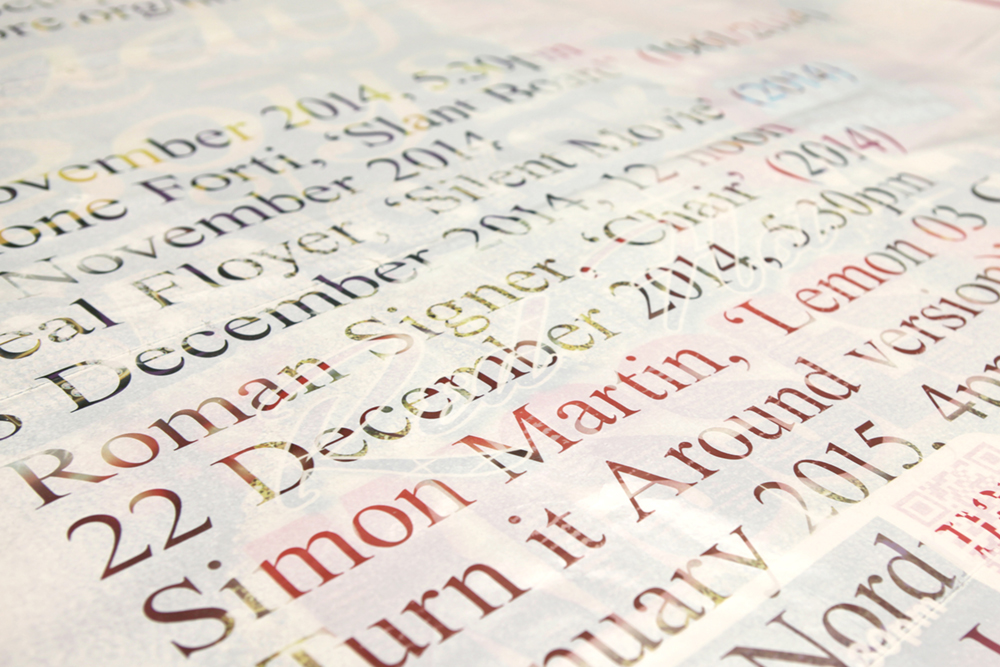 re.org/
November 2014, 5.30p
one Forti, 'Slant Board' (1961/2014)
November 2014,
eal Floyer, 'Silent Movie' (2014)
December 2014, 12 noon
Roman Signer 'Chair' (2014)
22 December 2014, 5.30pm
Simon Martin, 'Lemon 03 C
Turn it Around version)
nuary 2015, 4pm
Nord